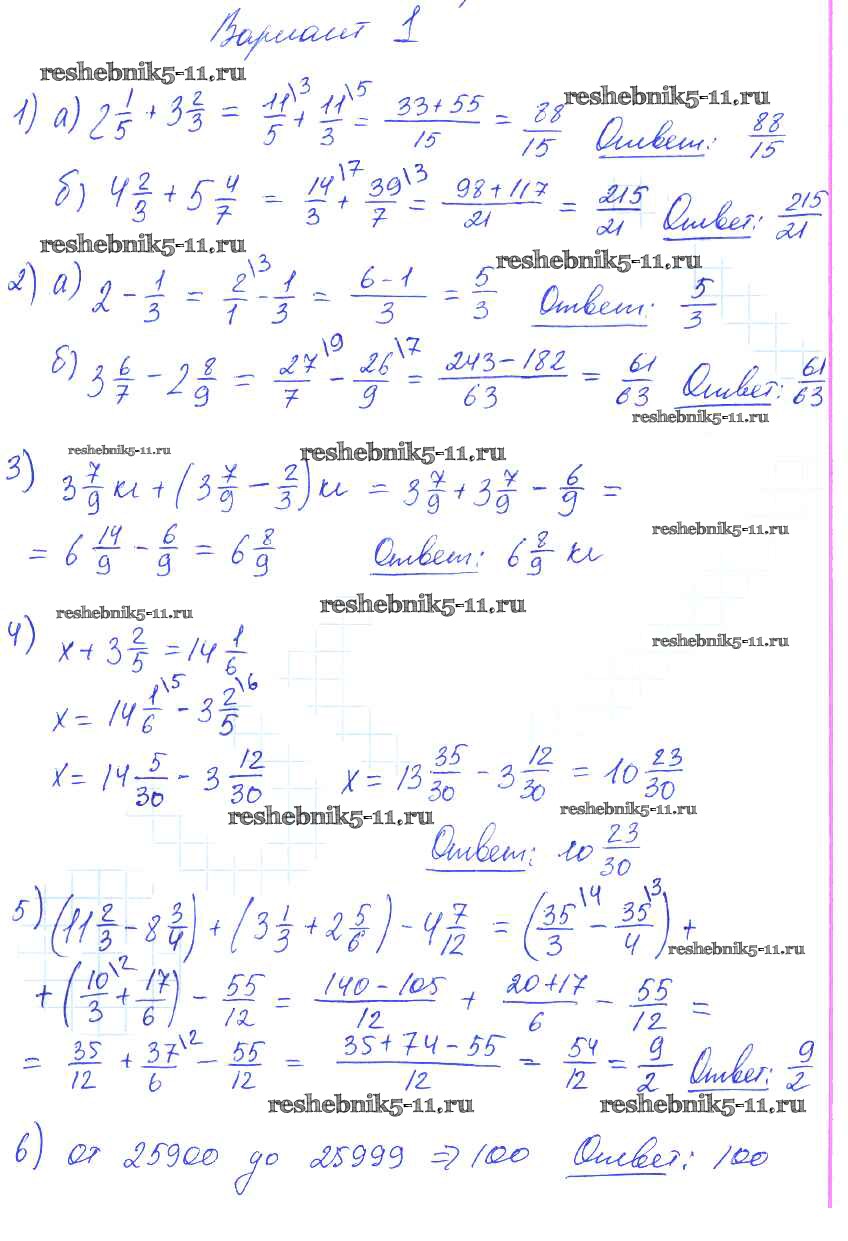 Вариант 1
reshebnik5-11.ru
1) а) 2 1/5 + 3 2/3 = 11/5 \3 + 11/3 \5 = (33+55)/15 = 88/15 Ответ: 88/15
reshebnik5-11.ru
б) 4 2/3 + 5 4/7 = 14/3 \7 + 39/7 \3 = (98+117)/21 = 215/21 Ответ: 215/21
reshebnik5-11.ru
reshebnik5-11.ru
2) а) 2 - 1/3 = 2/1 \3 - 1/3 = (6-1)/3 = 5/3 Ответ: 5/3
б) 3 6/7 - 2 8/9 = 27/7 \9 - 26/9 \7 = (243-182)/63 = 61/63 Ответ: 61/63
reshebnik5-11.ru
reshebnik5-11.ru
reshebnik5-11.ru
3) 3 7/9 кг + (3 7/9 - 2/3) кг = 3 7/9 + 3 7/9 - 6/9 =
reshebnik5-11.ru
= 6 14/9 - 6/9 = 6 8/9 Ответ: 6 8/9 кг
reshebnik5-11.ru
reshebnik5-11.ru
4) x + 3 2/5 = 14 1/6
reshebnik5-11.ru
x = 14 1/6 \5 - 3 2/5 \6
x = 14 5/30 - 3 12/30 x = 13 35/30 - 3 12/30 = 10 23/30
reshebnik5-11.ru
reshebnik5-11.ru
Ответ: 10 23/30
5) (11 2/3 - 8 3/4) + (3 1/3 + 2 5/6) - 4 7/12 = (35/3 \4 - 35/4 \3) +
reshebnik5-11.ru
+ (10/3 \2 + 17/6) - 55/12 = (140-105)/12 + (20+17)/6 - 55/12 =
= 35/12 + 37/6 \2 - 55/12 = (35+74-55)/12 = 54/12 = 9/2 Ответ: 9/2
reshebnik5-11.ru
reshebnik5-11.ru
6) от 25900 до 25999 => 100 Ответ: 100